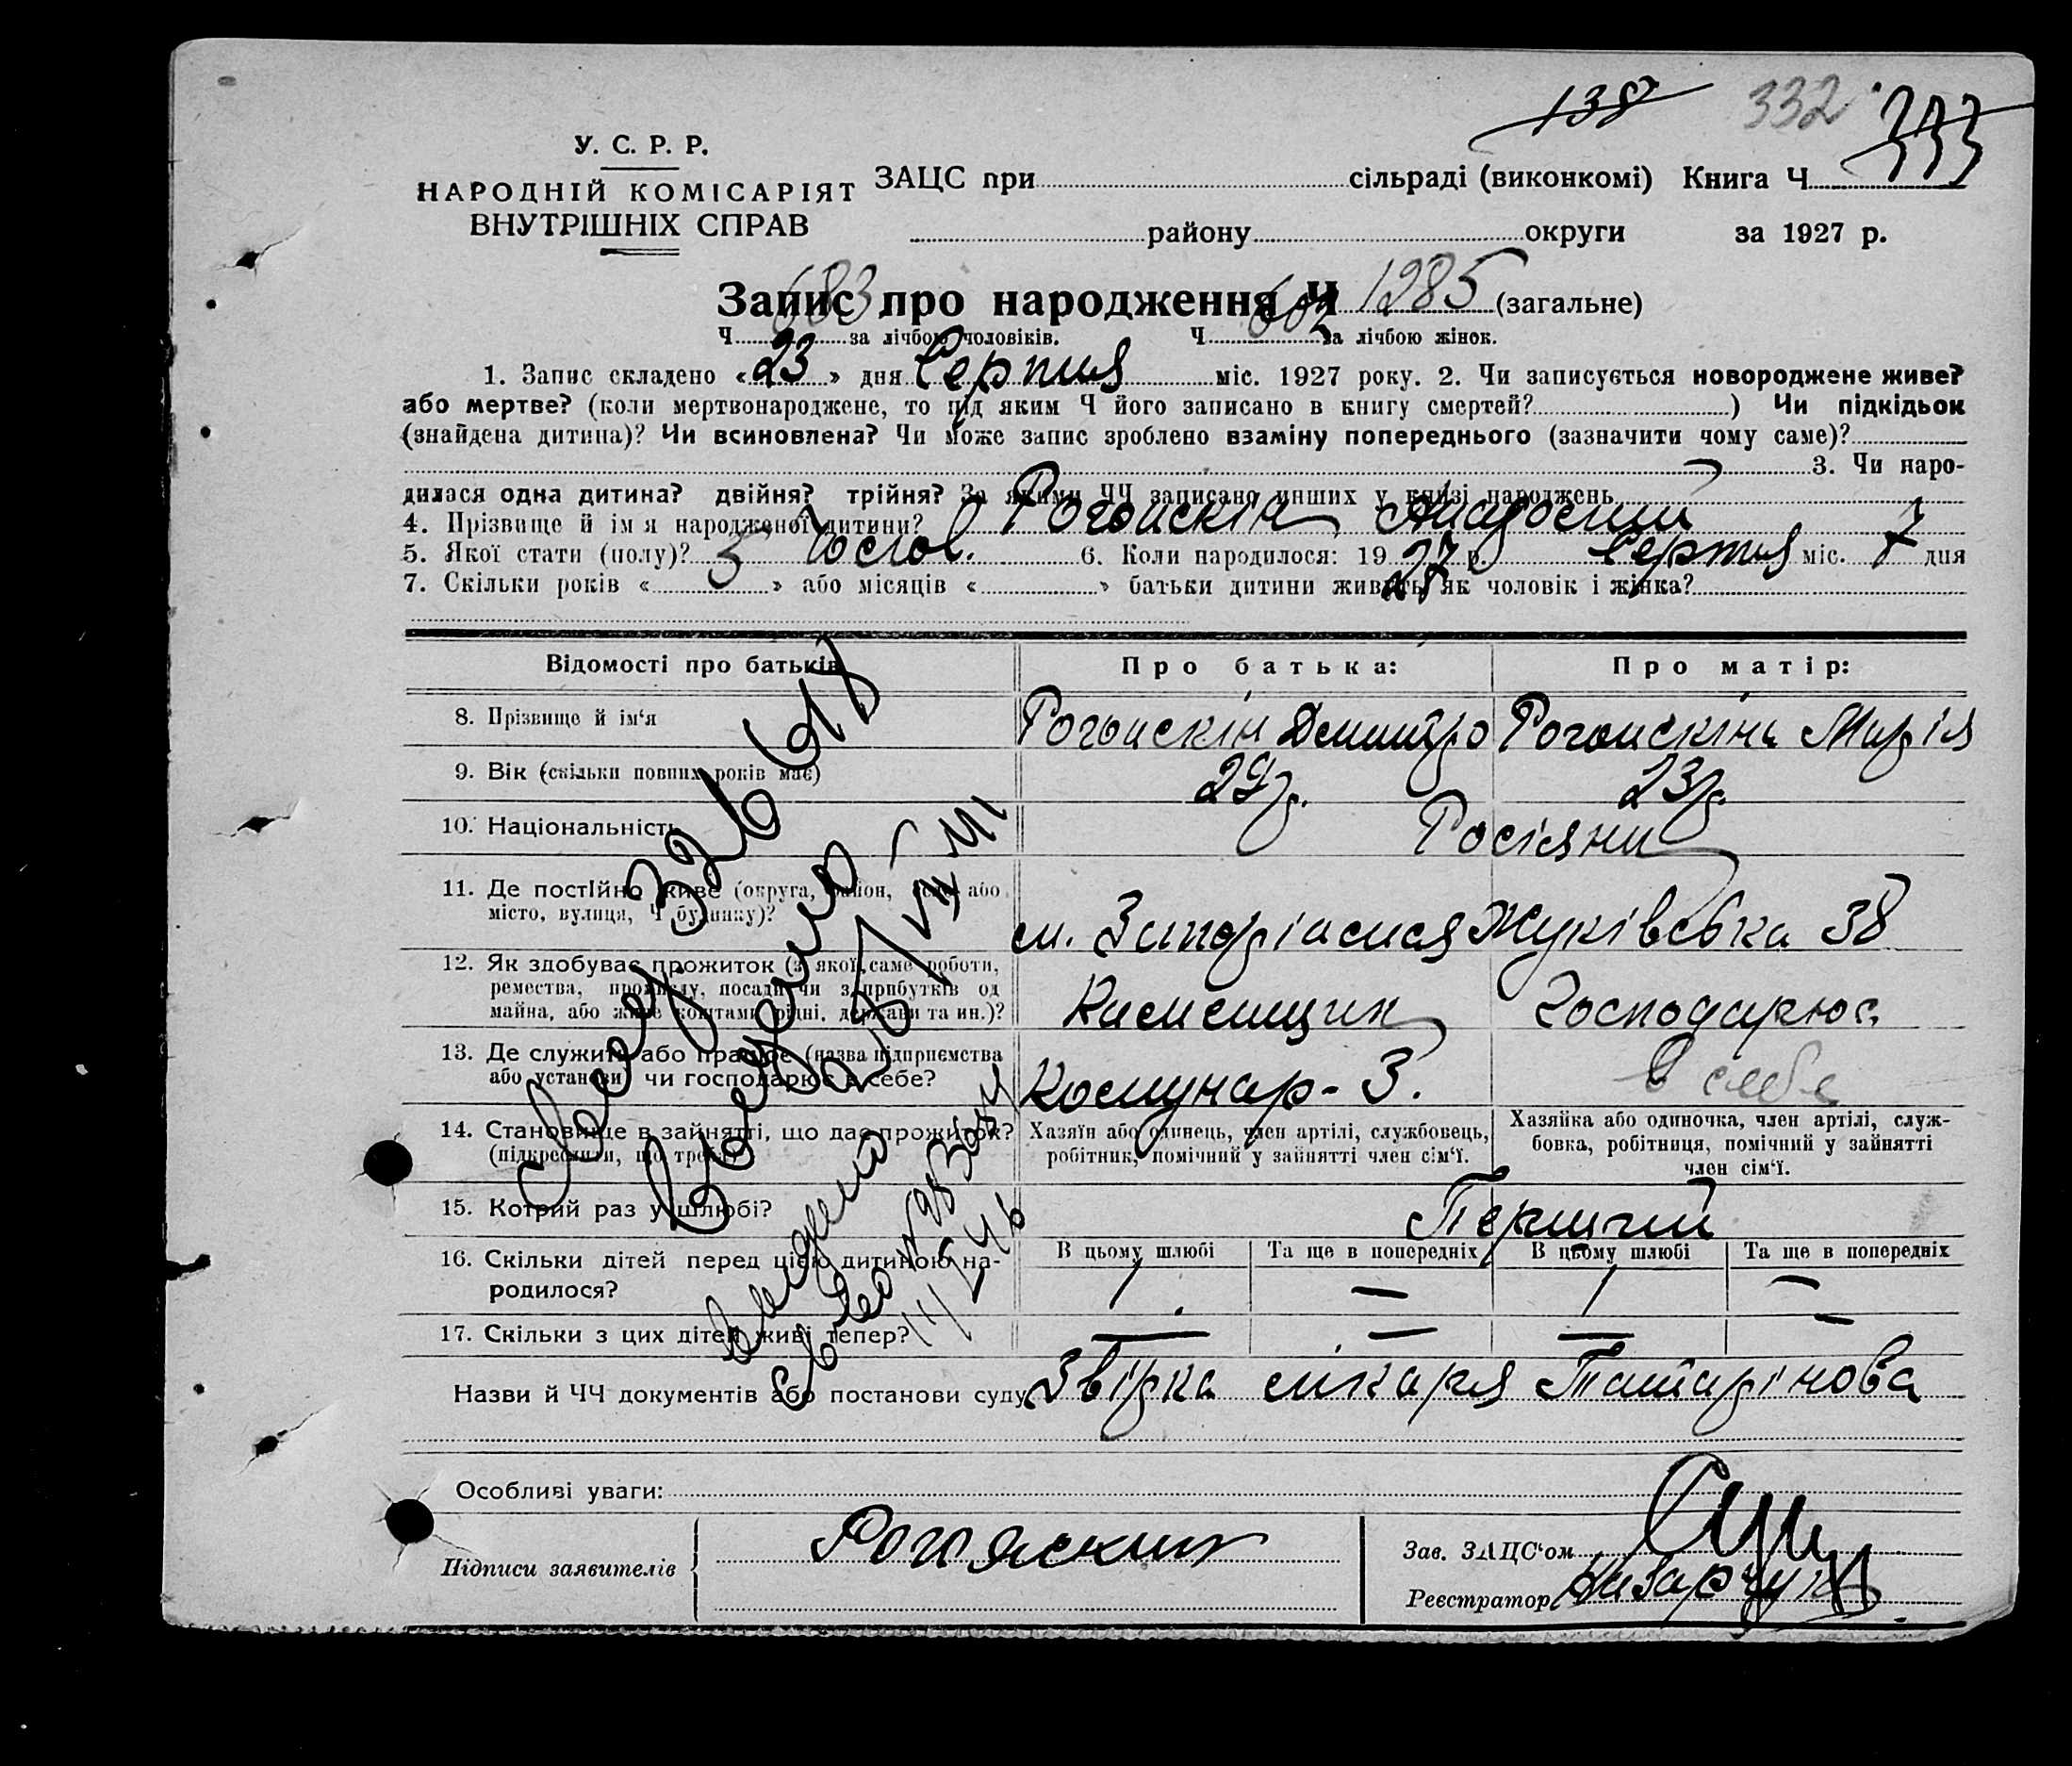 138 332 333
У. С. Р. Р.
НАРОДНІЙ КОМІСАРІЯТ
ВНУТРІШНІХ СПРАВ
ЗАЦС при сільраді (виконкомі) Книга Ч
району округи за 1927 р.
Запис про народження Ч 1285 (загальне)
683 602
Ч за лічбою чоловіків. Ч за лічбою жінок.
1. Запис складено «23» дня Серпня міс. 1927 року. 2. Чи записується новороджене живе?
або мертве? (коли мертвонароджене, то під яким Ч його записано в книгу смертей? ) Чи підкідьок
(знайдена дитина)? Чи всиновлена? Чи може запис зроблено взаміну попереднього (зазначити чому саме)?
3. Чи наро-
дилася одна дитина? двійня? трійня? За якими ЧЧ записано инших у книзі народжень
4. Прізвище й імя народженої дитини?
5. Якої стати (полу)? Чолов. 6. Коли народилося: 1927 р. Серпня міс. 7 дня
7. Скільки років «5» або місяців « » батьки дитини живуть як чоловік і жінка?
Відомості про батьків Про батька: Про матір:
8. Прізвище й ім'я Дмитро Марія
9. Вік (скільки повних років має) 29 р. 23 р.
10. Національність Росіяни
11. Де постійно живе (округа, район, село або
місто, вулиця, Ч будинку)?
м. Запоріжжя Жуківська 38
12. Як здобуває прожиток (з якої саме роботи,
ремества, промислу, посади чи з прибутків од
майна, або живе коштами рідні, держави та ин.)?
Господарює
13. Де служить або працює (назва підприємства
або установи) чи господарює в себе?
Комунар - З. в себе
14. Становище в зайнятті, що дає прожиток?
(підкреслити, що треба)
Хазяїн або одинець, член артілі, службовець,
робітник, помічний у зайнятті член сім'ї.
Хазяйка або одиночка, член артілі, служ-
бовка, робітниця, помічний у зайнятті
член сім'ї.
15. Котрий раз у шлюбі? Перший
16. Скільки дітей перед цією дитиною на-
родилося?
В цьому шлюбі Та ще в попередніх В цьому шлюбі Та ще в попередніх
1 — 1 —
17. Скільки з цих дітей живі тепер? — — — —
Назви й ЧЧ документів або постанови суду Звірка лікаря Татарінова
Особливі уваги:
Підписи заявителів
Зав. ЗАЦС'ом
Реєстратор Назарчук